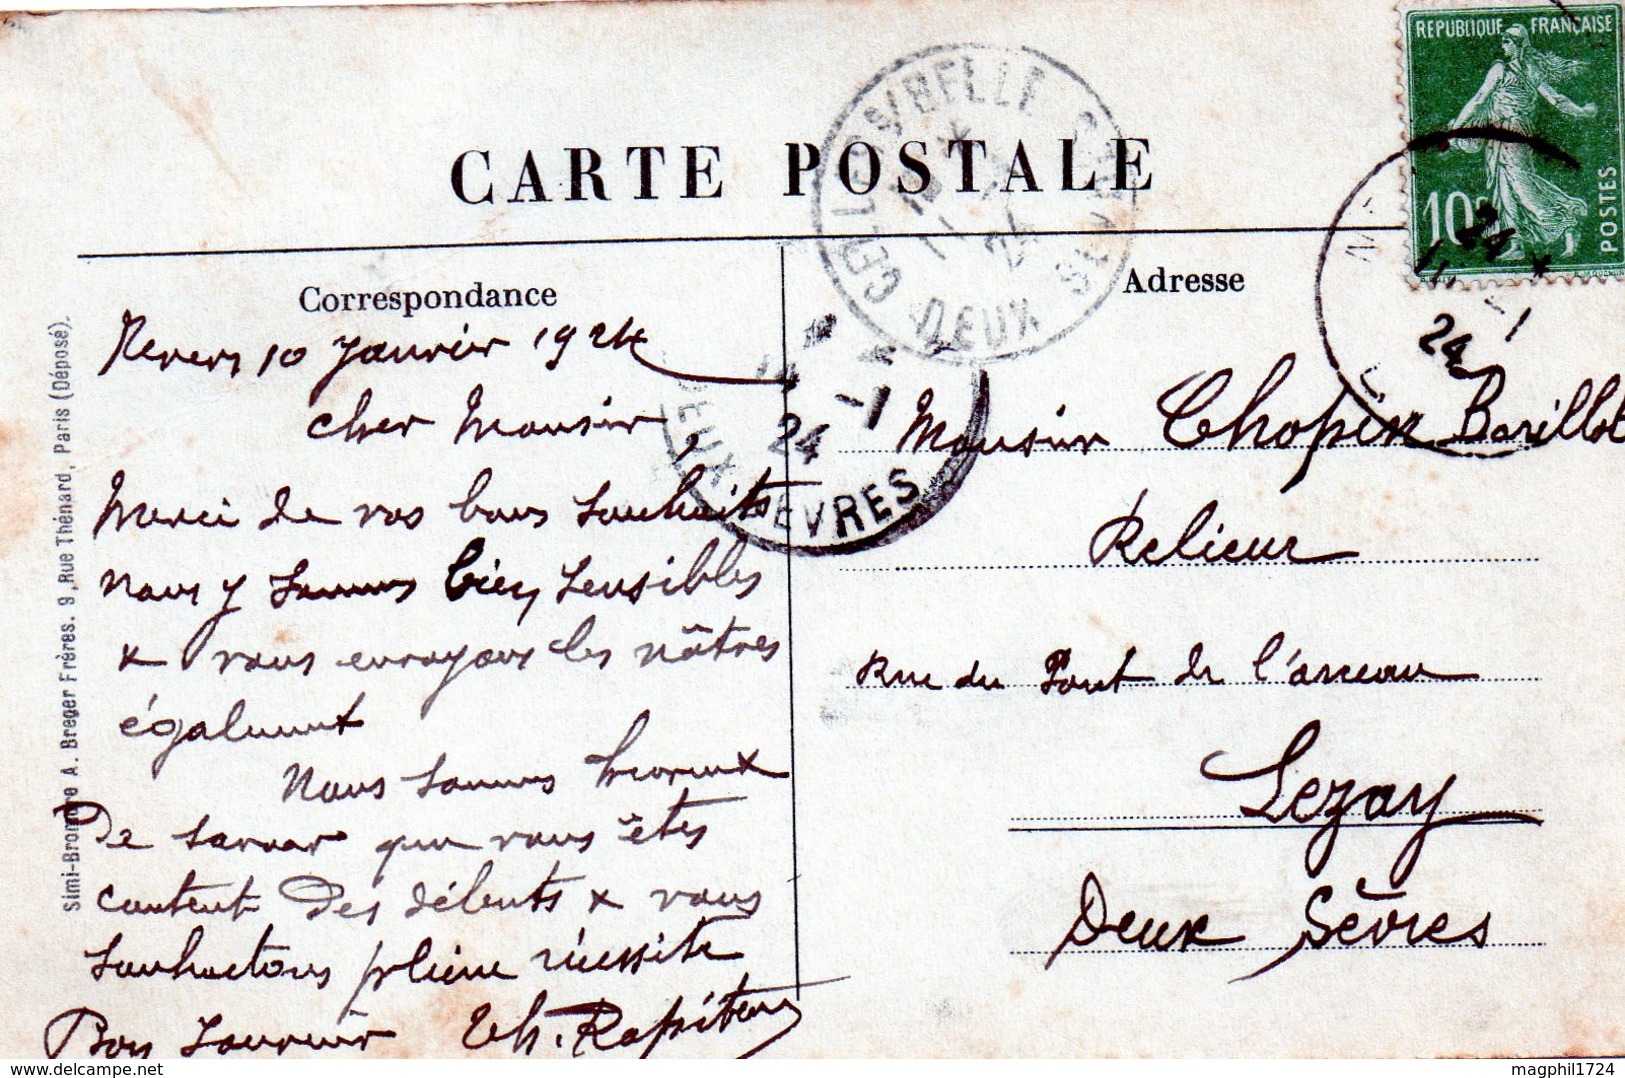 RÉPUBLIQUE FRANÇAISE
10c
POSTES
CARTE POSTALE
CELLES S/BELLE
DEUX SÈVRES
24
Correspondance
Adresse
Nevers 10 Janvier 1924
Cher Monsieur,
Merci de vos bons souhaits
nous y sommes bien sensibles
& vous envoyons les nôtres
également
Nous sommes heureux
De savoir que vous êtes
content des débuts & vous
souhaitons pleine réussite
Bon souvenir Th. Rapiteau
14 -1
24
DEUX SEVRES
24
11 -1
24
Monsieur Chopin Barillot
Relieur
Rue du Pont de l'arceau
Lezay
Deux Sèvres
Simi-Bromure A. Breger Frères. 9, Rue Thénard, Paris (Déposé).
delcampe.net
magphil1724